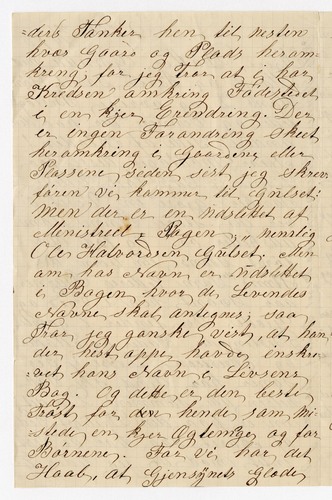 =ders Tanker hen til nesten
hver Gaard og Plads heram-
kring, for jeg Tror at i har
Kredsen amkring Födestedet
i en kjer Erindring. Der
er ingen Forandring skeet
heramkring i Gaardene eller
Plassene siden sist jeg skrev
fören vi kammer til Gulset:
men der er en udslettet af
Ministreell Bagen, nemlig
Ole Halvordsen Gulset. Men
am has Navn er udslettet
i Bagen hvor de Levendes
Navne skal antegnes; saa
Trar jeg ganske vist, at han
der hest appe havde enskre-
vet hans Navn i Livsens
Bog. Og dette er den beste
Tröst for den hende sam mi-
stede en kjer Egtemage og for
Börnene. For vi har det
Haab, at Gjensynets Glæde